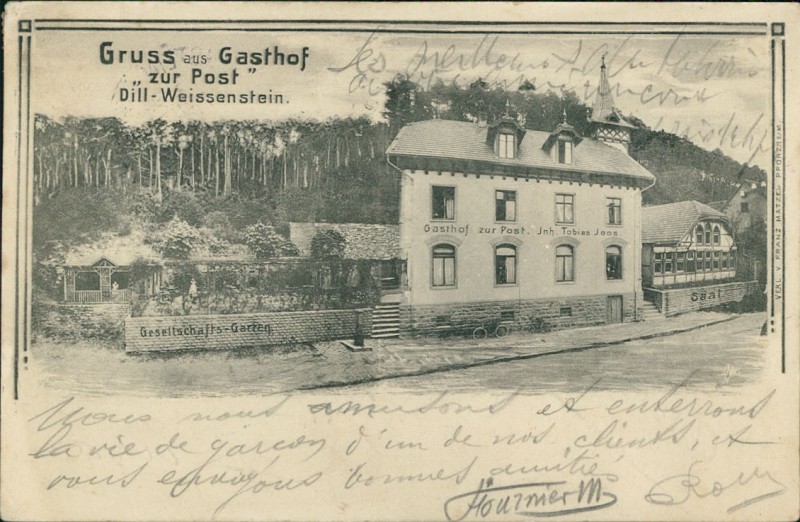 Gruss aus Gasthof
"zur Post"
Dill-Weissenstein.
Gasthof zur Post. Inh. Tobias Joos
Saal
Gesellschafts-Garten
VERL. V. FRANZ MATZEL PFORZHEIM.
Nous nous amusons et enterrons
la vie de garçon d'un de nos clients, et
vous envoyons bonnes amitiés